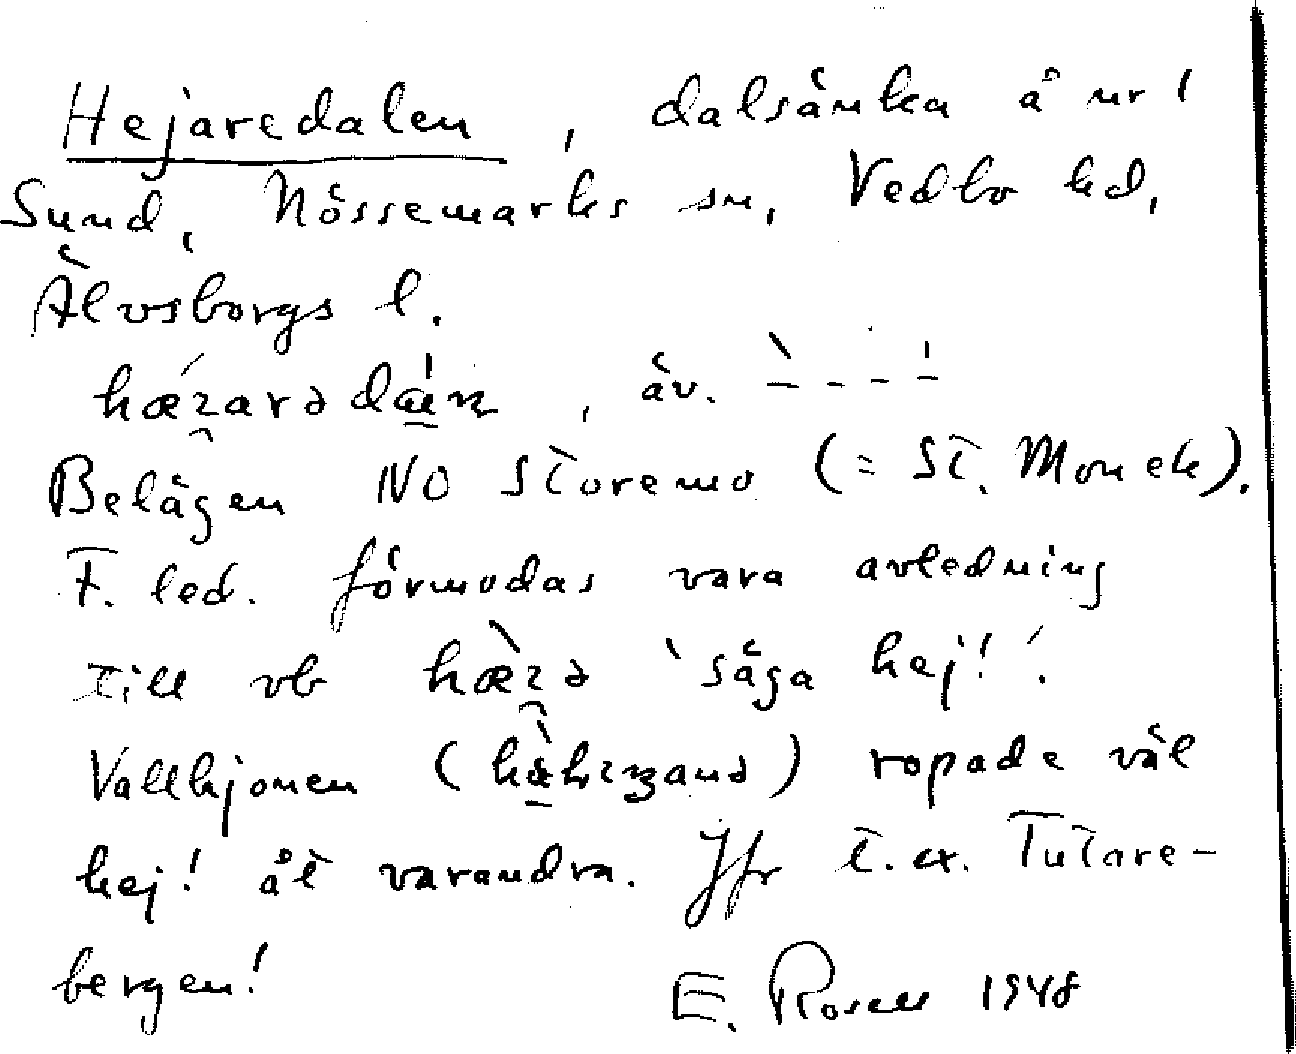 Hejaredalen, dalsänka å nr 1
Sund, Nössemarks sn, Vedbo hd,
Älvsborgs l.
, äv.
Belägen NO Storemo (= St. Mon ek).
F. led. förmodas vara avledning
till vb 'säga hej!'.
Vallhjonen ( ) ropade väl
hej! åt varandra. Jfr t.ex. Tutare-
bergen!
E. Rosell 1948